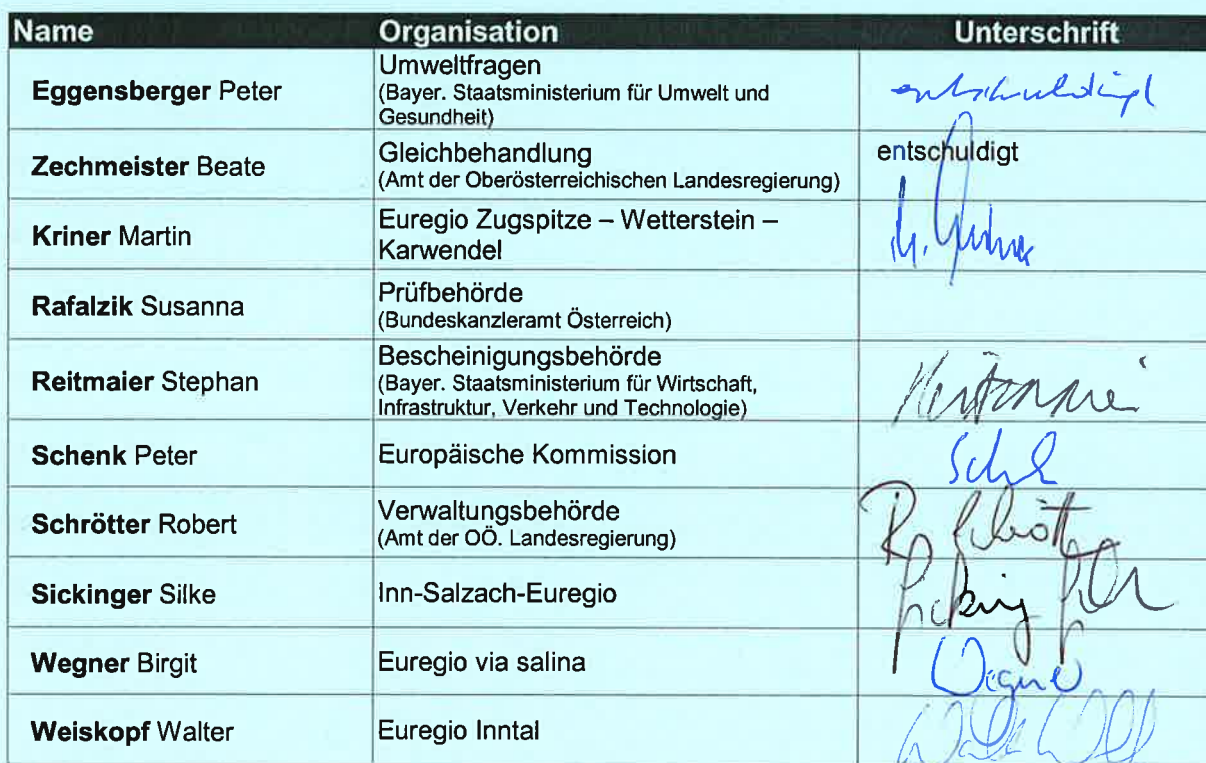 Name Organisation Unterschrift
Eggensberger Peter Umweltfragen entschuldigt
(Bayer. Staatsministerium für Umwelt und
Gesundheit)
Zechmeister Beate Gleichbehandlung entschuldigt
(Amt der Oberösterreichischen Landesregierung)
Kriner Martin Euregio Zugspitze – Wetterstein –
Karwendel
Rafalzik Susanna Prüfbehörde
(Bundeskanzleramt Österreich)
Reitmaier Stephan Bescheinigungsbehörde
(Bayer. Staatsministerium für Wirtschaft,
Infrastruktur, Verkehr und Technologie)
Schenk Peter Europäische Kommission
Schrötter Robert Verwaltungsbehörde
(Amt der OÖ. Landesregierung)
Sickinger Silke Inn-Salzach-Euregio
Wegner Birgit Euregio via salina Wegner
Weiskopf Walter Euregio Inntal